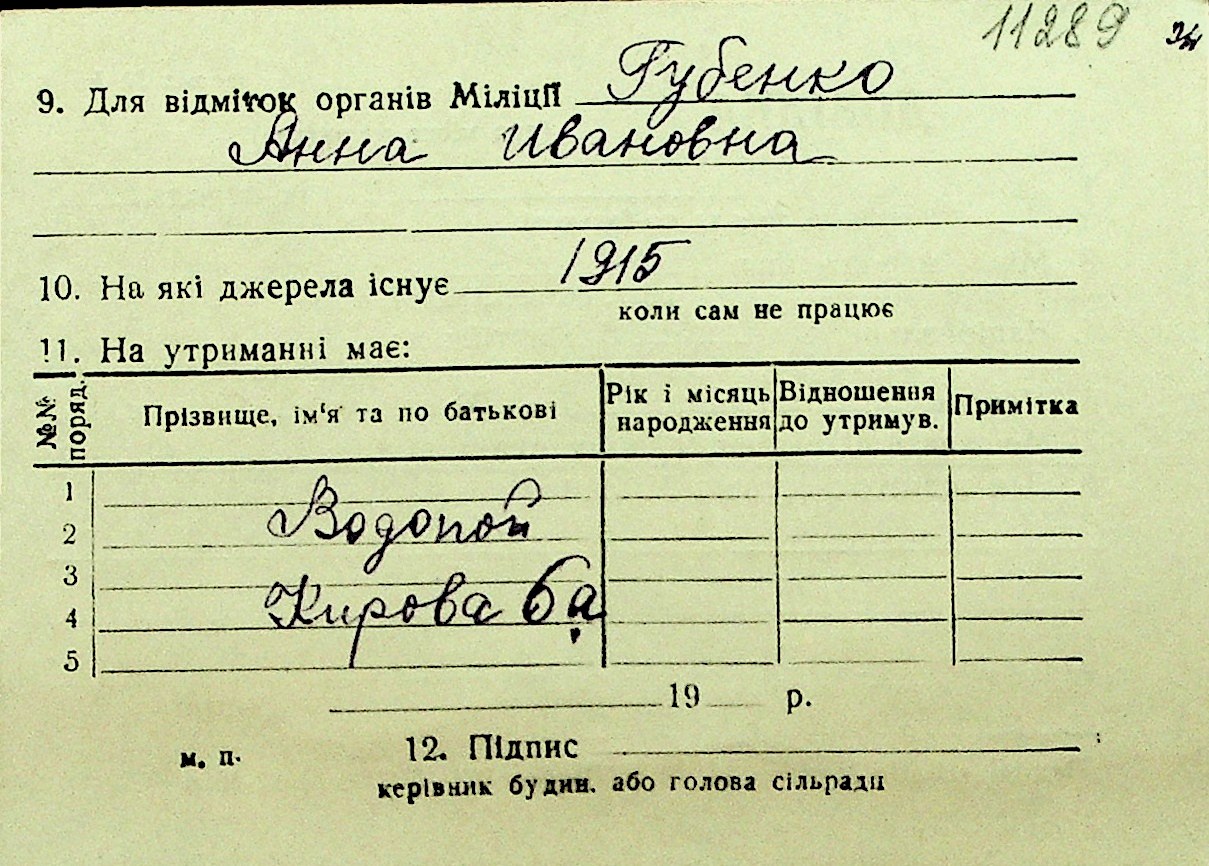 11289
9. Для відміток органів Міліції Губенко
Анна Ивановна
10. На які джерела існує 1915
коли сам не працює
11. На утриманні має:
№№ поряд.
Прізвище, ім'я та по батькові
Рік і місяць народження
Відношення до утримув.
Примітка
1
2 Водопой
3
4 Кирова 6а
5
19 р.
м. п. 12. Підпис
керівник будин. або голова сільради